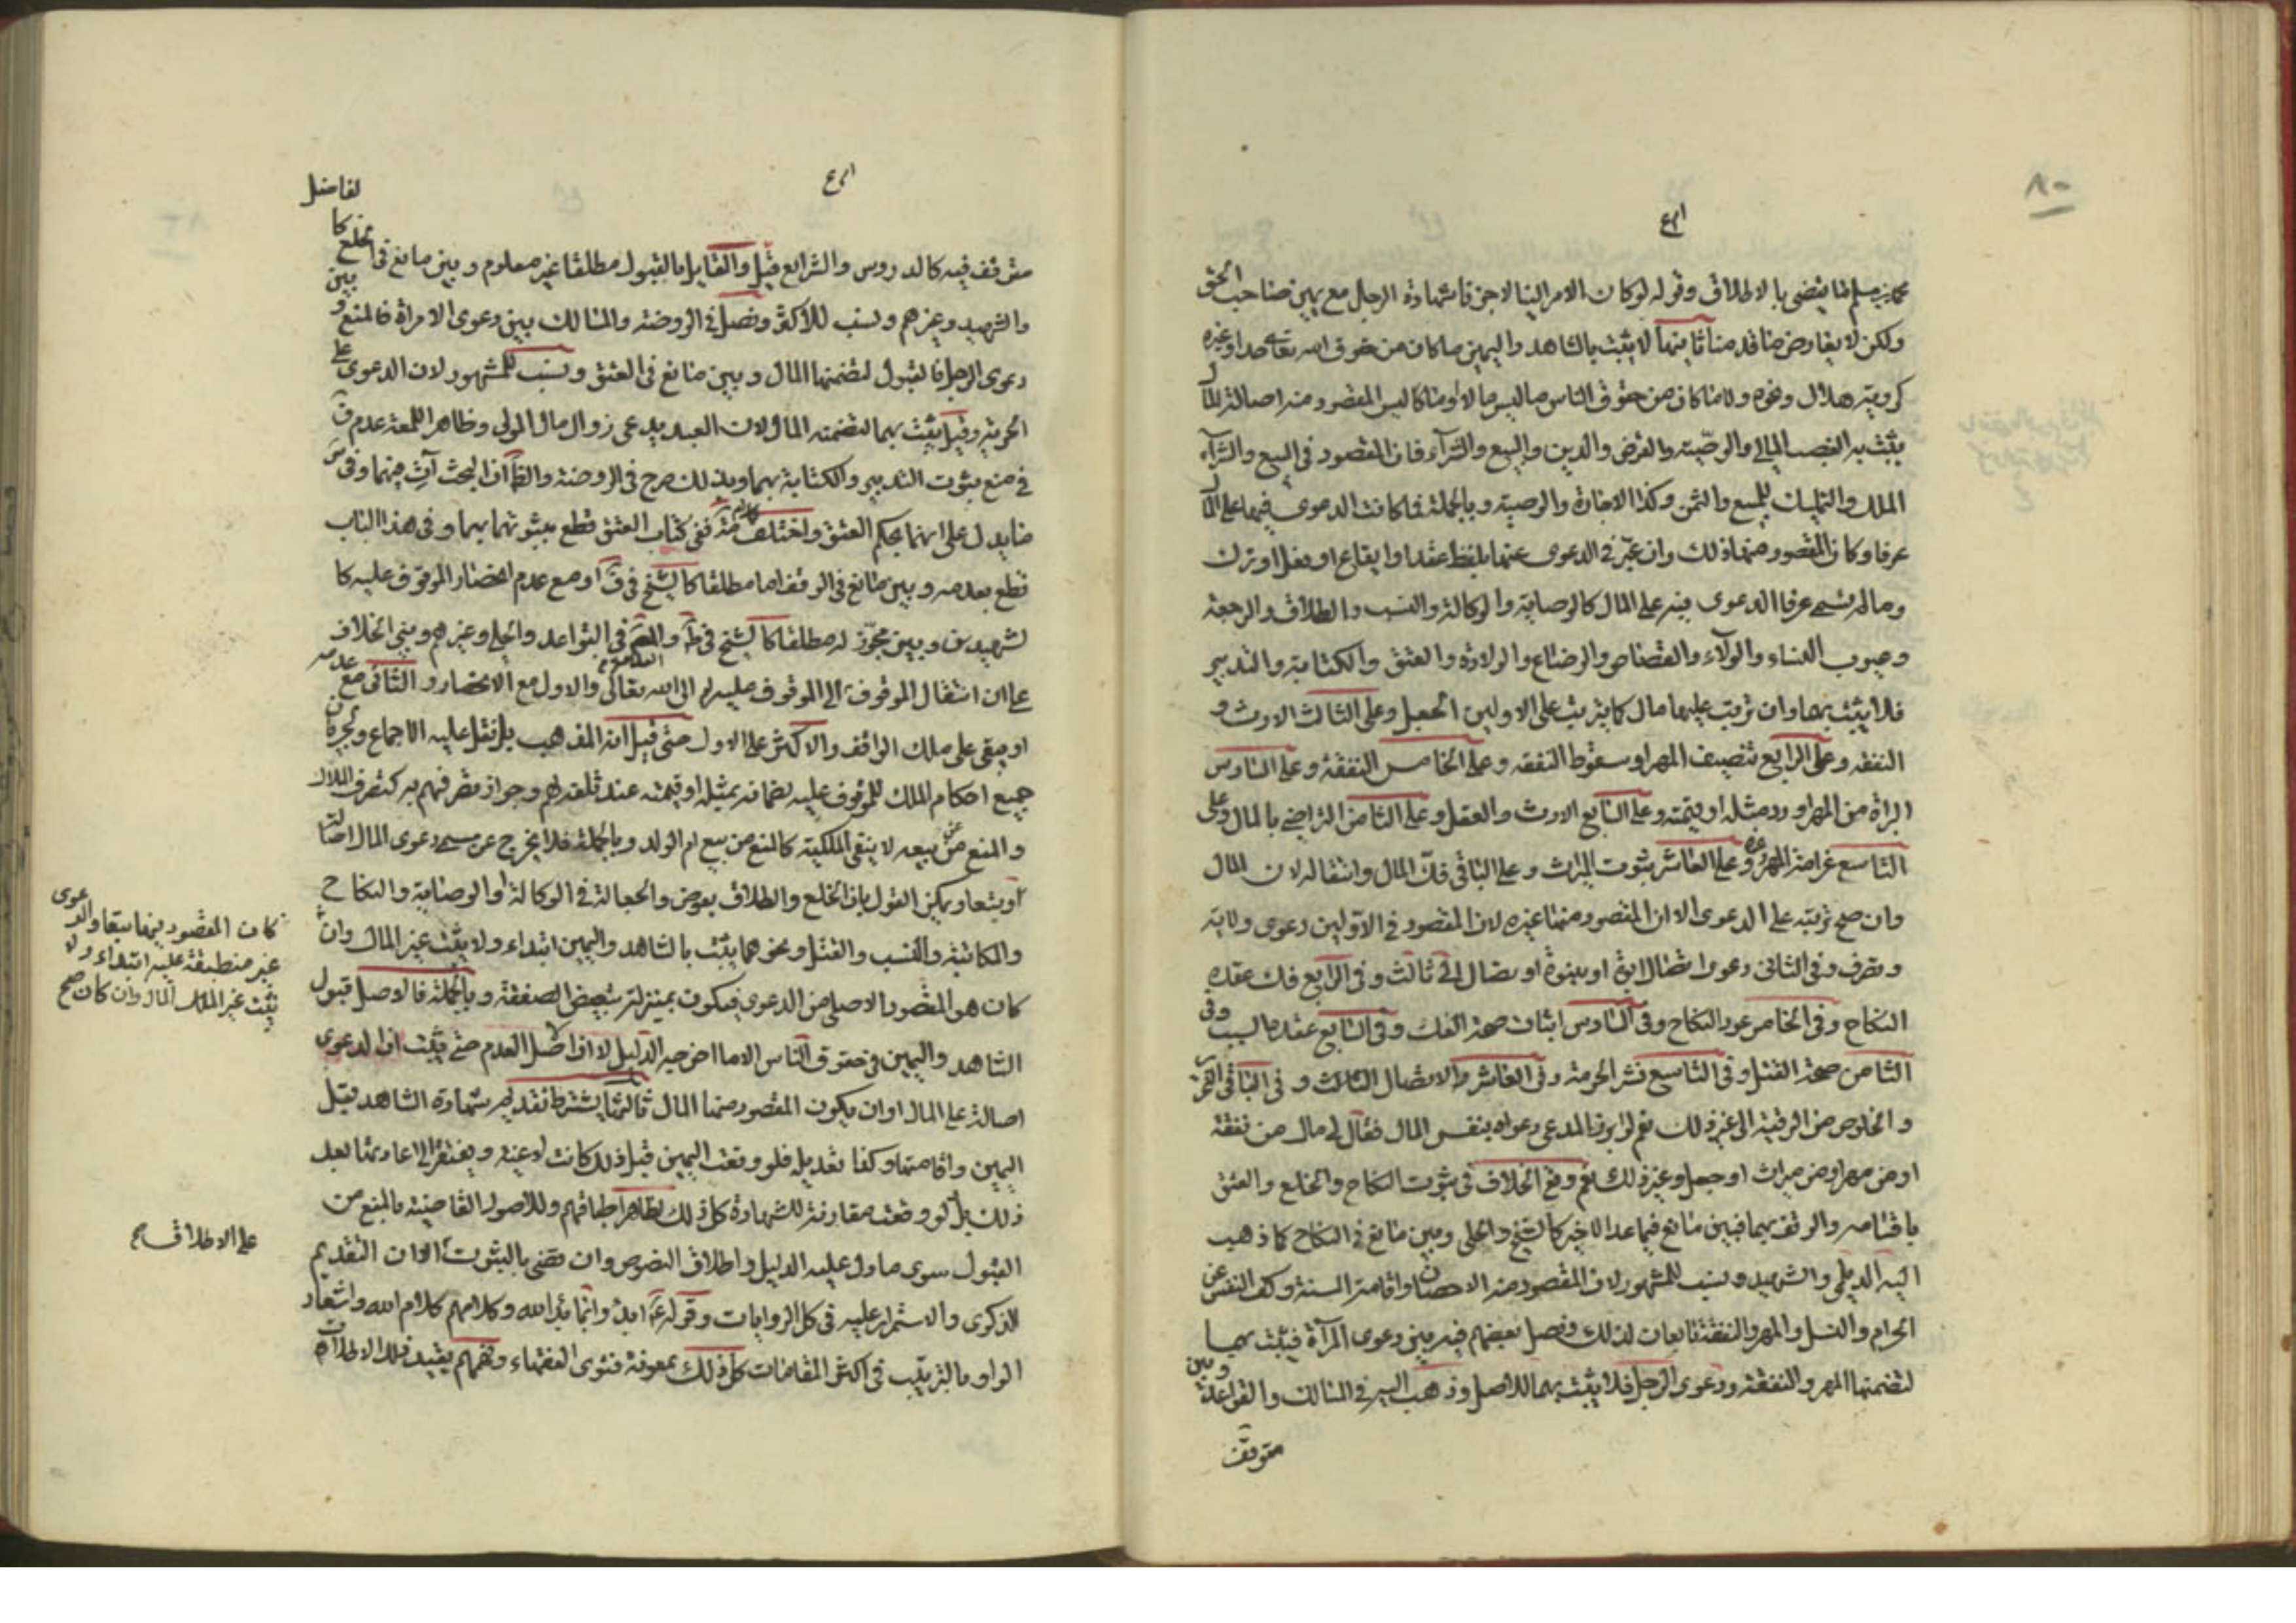 ٨٠
محمد بن مسلم انما يقضى بالاطلاق وقوله لو كان الامر الينا لاجزنا شهادة الرجل مع يمين صاحب الحق
ولكن لا يعارض ما قدمنا ثانيها لا يثبت بالشاهد واليمين ما كان من حقوق الله تعالى حدا او غيره
كرؤية هلال ونحوه ولا ما كان من حقوق الناس ما ليس مالا او ما كان ليس المقصود منه اصالة المال
يثبت به الغصب المالي والوصية والقرض والدين والبيع والشراء فان المقصود في البيع والشراء
الملك والتمليك للمبيع والثمن وكذا الاجارة والوصية وبالجملة فما كانت الدعوى فيها على المال
عرفا وكان المقصود منها ذلك وان عبر في الدعوى عنها بلفظ عقد او ايقاع او فعل او ترك
وما لم تسم عرفا الدعوى فيه على المال كالوصاية والوكالة والنسب والطلاق والرجعة
وعيوب النساء والولاء والقصاص والرضاع والولادة والعتق والكتابة والتدبير
فلا يثبت بها وان ترتب عليها مال كما يترتب على الاولين الجعل وعلى الثالث الارث و
النفقة وعلى الرابع تنصيف المهر او سقوط النفقة وعلى الخامس النفقة وعلى السادس
ابراة من المهر او رد مثله او قيمته وعلى السابع الارث والعقل وعلى الثامن التراضي بالمال وعلى
التاسع غرامة المهر وغيره وعلى العاشر ثبوت الميراث وعلى الباقي فك المال وانتقاله لان المال
وان صح ترتبه على الدعوى الا ان المقصود منها غيره لان المقصود في الاولين دعوى ولاية
وتصرف وفي الثاني دعوى اتصال ابوة او بنوة او اتصال الى ثالث وفي الرابع فك عقدة
النكاح وفي الخامس عود النكاح وفي السادس اثبات صحة الفك وفي السابع عقد ما ليسب وفي
الثامن صحة القتل وفي التاسع نشر الحرمة وفي العاشر والاتصال الثالث وفي الباقي التحرر
والخلوص من الرقية الى غير ذلك نعم لو ابرز المدعي دعواه بنفس المال فقال لي مال من نفقة
او من مهر او من ميراث او جعل وغير ذلك نعم وقع الخلاف في ثبوت النكاح والخلع والعتق
باقسامه والوقف بهما فبين مانع فيما عدا الاخير كالشيخ والحلي وبين مانع في النكاح كما ذهب
اليه الديلمي والشهيد ونسب للمشهور لان المقصود منه الاحصان واقامة السنة وكف النفس عن
الحرام والنسل والمهر والنفقة تابعان لذلك وفصل بعضهم فيه بين دعوى المرأة فيثبت بهما
لتضمنها المهر والنفقة ودعوى الرجل فلا يثبت بهما للاصل وذهب اليه في المسالك والقواعد وبين
متوقف
متوقف فيه كالدروس والشرايع قيل والقايل بالقبول مطلقا غير معلوم وبين مانع في الخلع كالفاضل
والشهيد وغيرهم ونسب للاكثر وفصل في الروضة والمسالك بين دعوى الامراة فالمنع وبين
دعوى الرجل فالقبول لتضمنها المال وبين مانع في العتق ونسب للمشهور لان الدعوى على
الحرية وقيل يثبت بهما لتضمنه المال لان العبد يدعى زوال مال المولى وظاهر اللمعة عدم
في منع ثبوت التدبير والكتابة بهما وبذلك صرح في الروضة والظاهر ان البحث آت فيهما وفي
ما يدل على انهما بحكم العتق واختلف كلام ففي كتاب العتق قطع بثبوتهما بهما وفي هذا الباب
قطع بعدمه وبين مانع في الوقف اما مطلقا كالشيخ في ف او مع عدم انحصار الموقوف عليه كا
لشهيدين وبين مجوز له مطلقا كالشيخ في ط و في القواعد والحلي وغيرهم وبني الخلاف
على ان انتقال الموقوف الى الموقوف عليه ام الى الله تعالى والاول مع الانحصار والثاني مع عدمه
او يبقى على ملك الواقف والاكثر على الاول حتى قيل انه المذهب بل نقل عليه الاجماع ولجريان
جميع احكام الملك للموقوف عليه لضمانه بمثله او قيمته عند تلفه لهم وجواز تصرفهم به كتصرف الملاك
والمنع من بيعه لا ينفى الملكية كالمنع من بيع ام الولد وبالجملة فلا يخرج عن مسمى دعوى المال اصالة
او تبعا ويمكن القول بان الخلع والطلاق بعوض والجعالة في الوكالة او الوصاية والنكاح
والمكاتبة والنسب والقتل ونحوهما يثبت بالشاهد واليمين ابتداء ولا يثبت غير المال وان
كان هو المقصود الاصلي من الدعوى فيكون بمنزلة تبعيض الصفقة وبالجملة فالاصل قبول
الشاهد واليمين في حقوق الناس الا ما اخرجه الدليل لا ان اصل العدم حتى يثبت ان الدعوى
اصالة على المال او ان يكون المقصود منها المال ثالثها يشترط تقديم شهادة الشاهد قبل
اليمين واقامتها وكذا تعديله فلو وقعت اليمين قبل ذلك كانت لاغية ويفتقر الى اعادتها بعد
ذلك بل لو وقعت مقارنة للشهادة كل ذلك لظاهر اطباقهم وللاصول القاضية بالمنع من
القبول سوى ما دل عليه الدليل واطلاق النصوص وان قضى بالثبوت الا ان التقديم
الذكرى والاستمرار عليه في كل الروايات وقوله ع ابدؤا بما بدأ الله وكلامهم كلام الله واشعار
الواو بالترتيب في اكثر المقامات كل ذلك بمعونة فتوى الفقهاء وفهمهم يقيد تلك الاطلاقات
كان المقصود فيها تبعا والدعوى
غير منطبقة عليه ابتداء ولا
يثبت غير الملك المال وان كان صح
على الاطلاق صح